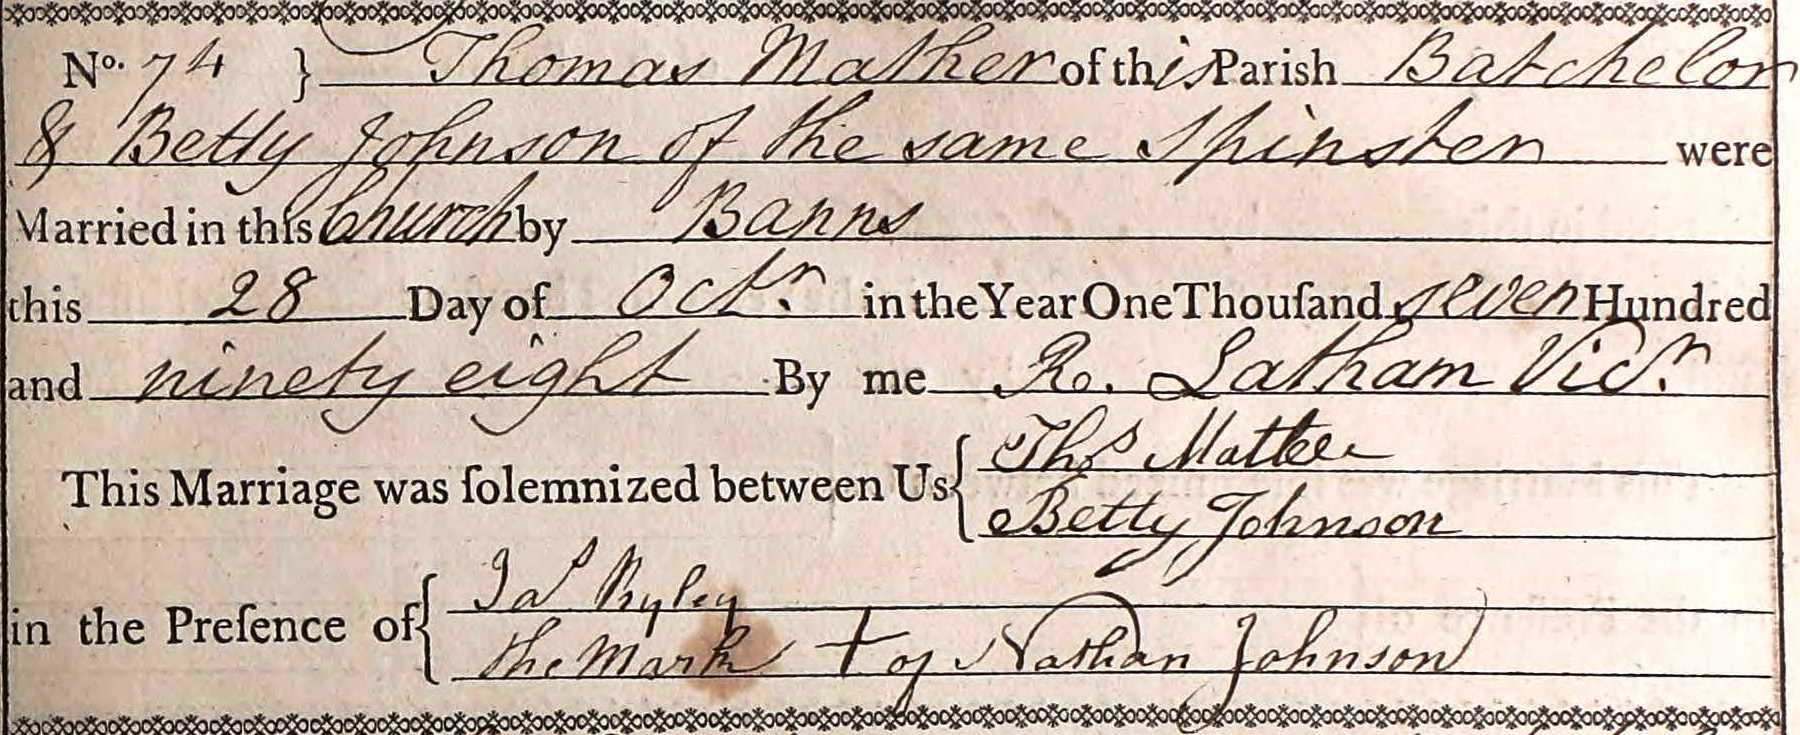 No. 74 } Thomas Mather of this Parish Batchelor
& Betty Johnson of the same Spinster were
Married in this Church by Banns
this 28 Day of Octr. in the Year One Thouſand seven Hundred
and ninety eight By me Ro. Latham Vicr.
Thos Mather
This Marriage was ſolemnized between Us {
Betty Johnson
Jas Ryley
in the Preſence of {
the Mark + of Nathan Johnson